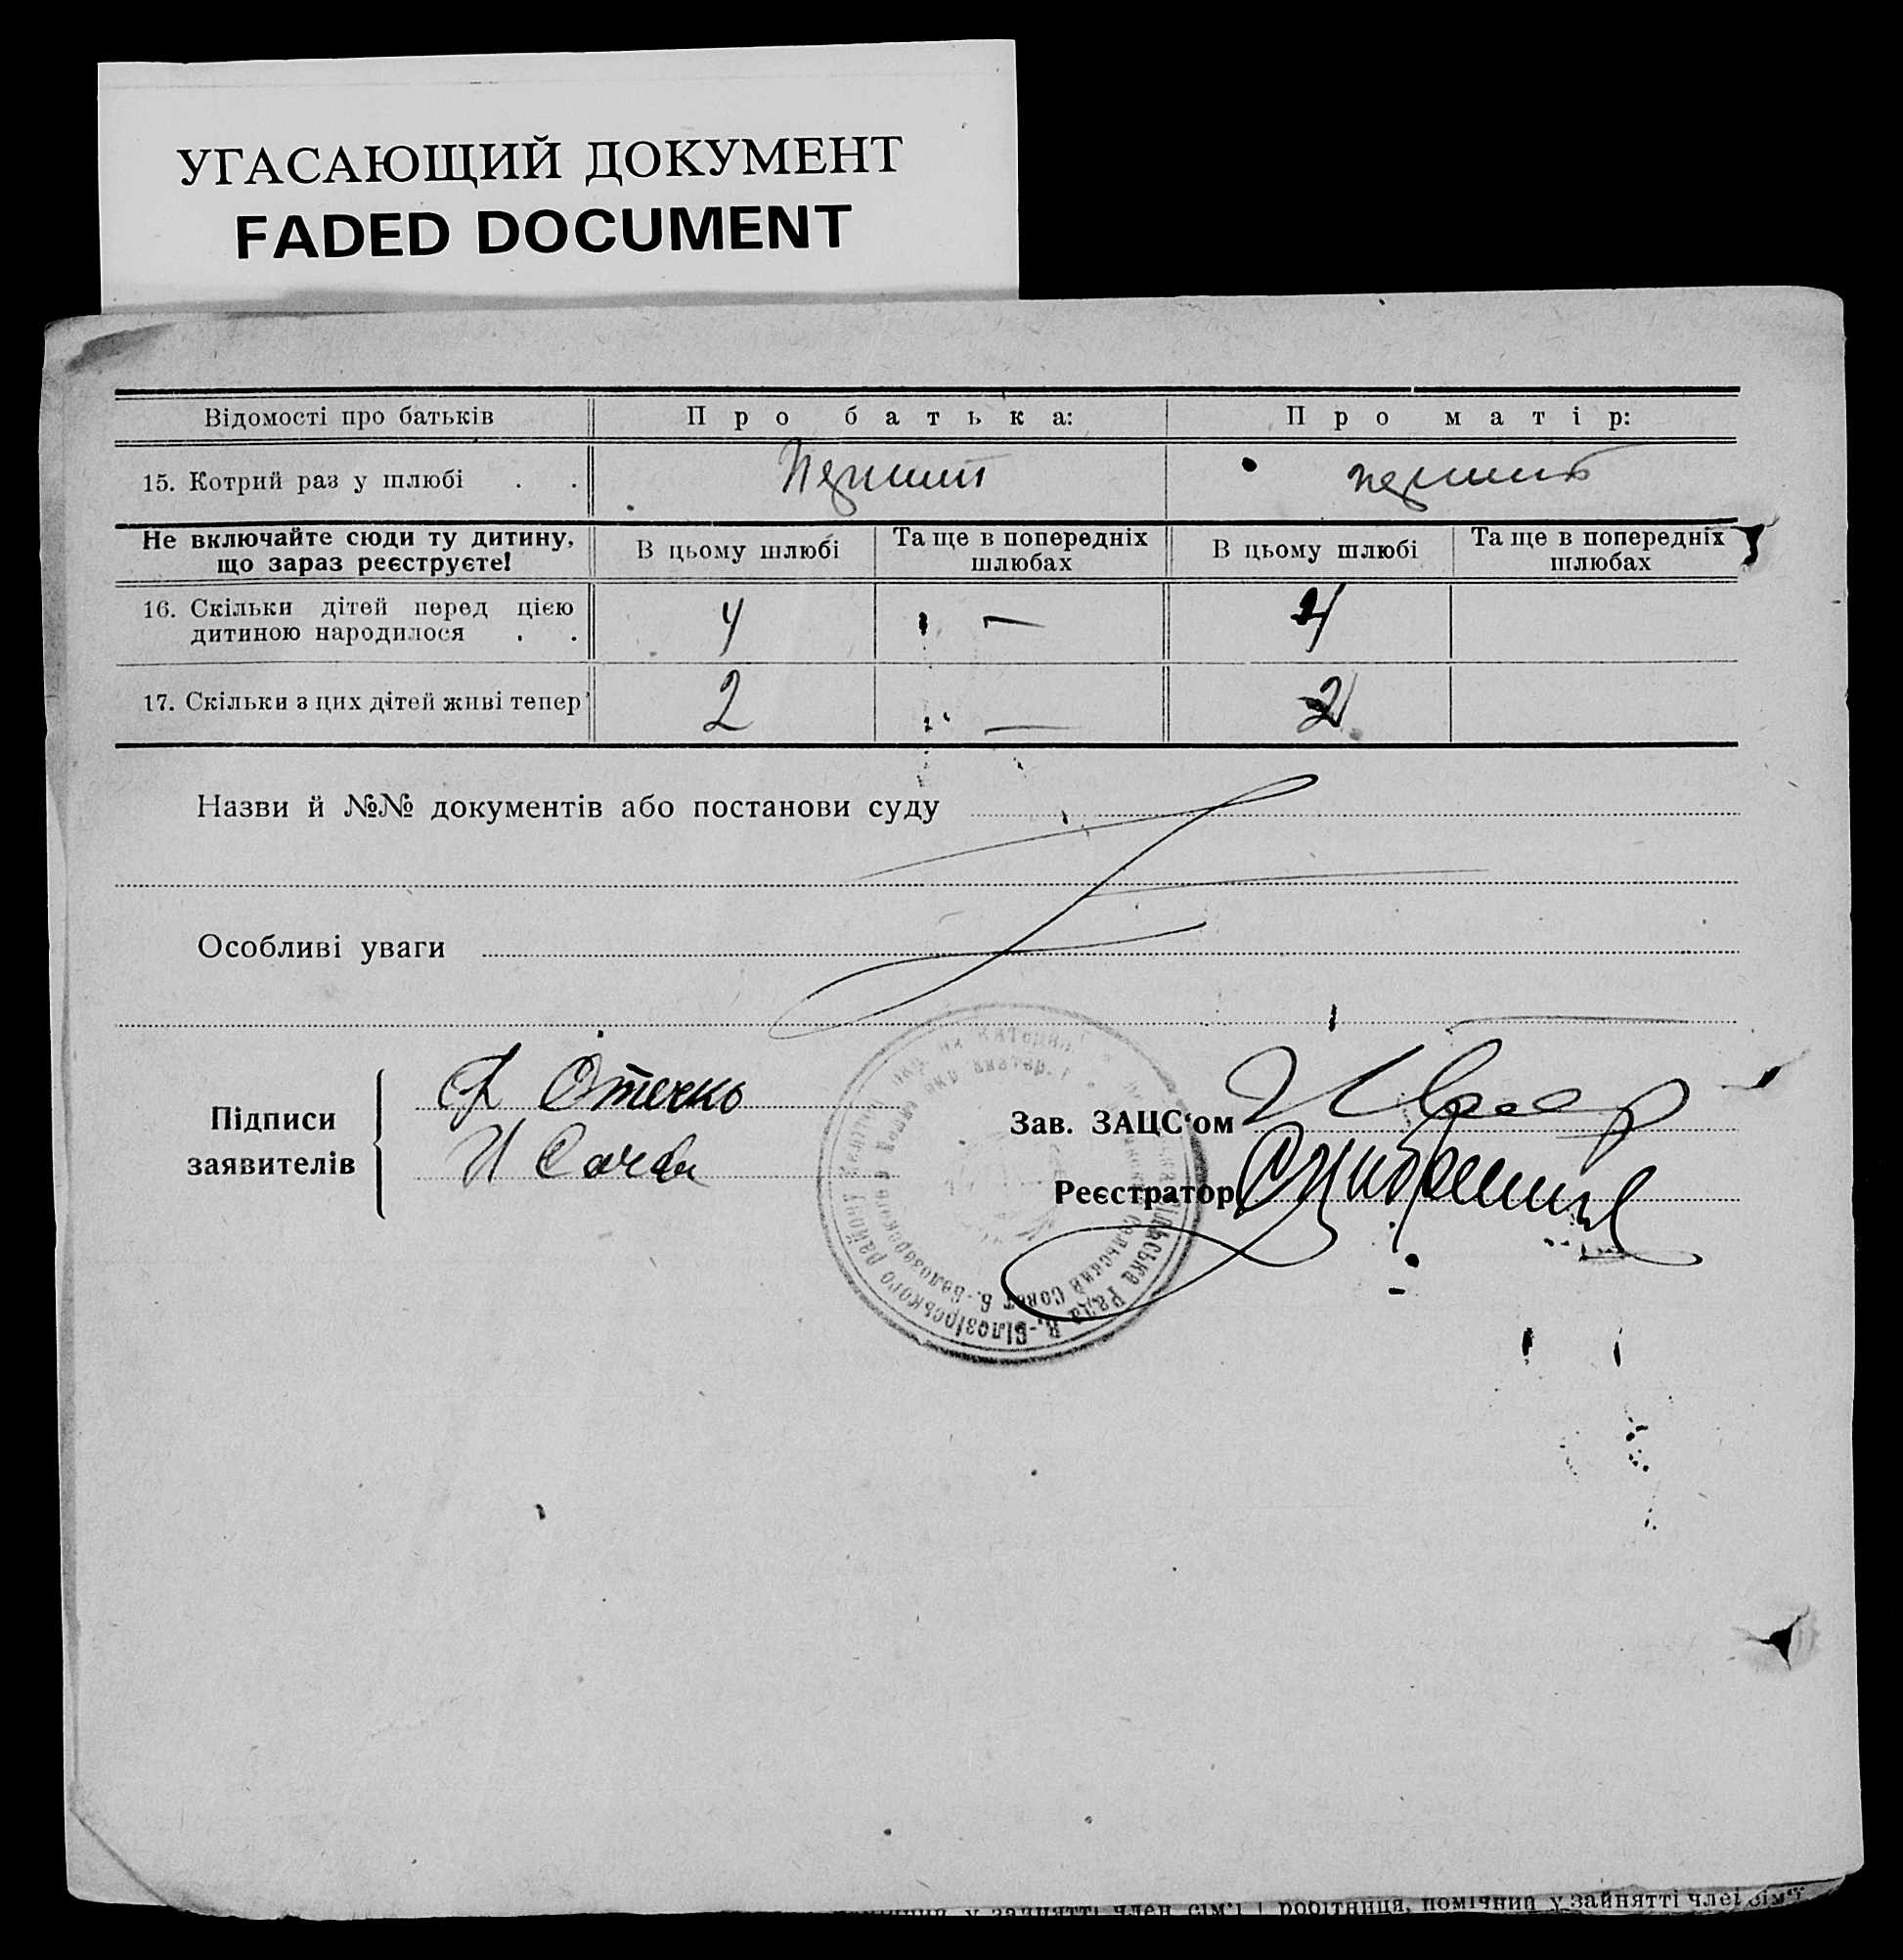 УГАСАЮЩИЙ ДОКУМЕНТ
FADED DOCUMENT
Відомості про батьків Про батька: Про матір:
15. Котрий раз у шлюбі . . Перший перший
Не включайте сюди ту дитину, що зараз реєструєте! В цьому шлюбі Та ще в попередніх шлюбах В цьому шлюбі Та ще в попередніх шлюбах
16. Скільки дітей перед цією
дитиною народилося . . 4 — 4
17. Скільки з цих дітей живі тепер 2 — 2
Назви й №№ документів або постанови суду
Особливі уваги
Підписи
заявителів
Зав. ЗАЦС‘ом
Реєстратор
В.-Білозірського району
Сільська Рада
Сельский Совет Б.-Белозерского
у зайнятті член сім‘ї і робітниця, помічний у зайнятті член сім‘ї